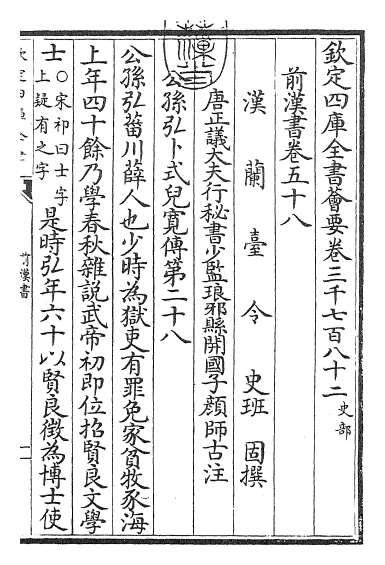 欽定四庫全書薈要卷三千七百八十二 史部
前漢書卷五十八
漢蘭臺令史班固撰
唐正議大夫行秘書少監琅邪縣開國子顏師古注
公孫弘卜式兒寬傳第二十八
公孫弘菑川薛人也少時為獄吏有罪免家貧牧豕海
上年四十餘乃學春秋雜說武帝初即位招賢良文學
士
○宋祁曰士字
上疑有之字
是時弘年六十以賢良徵為博士使
前漢書